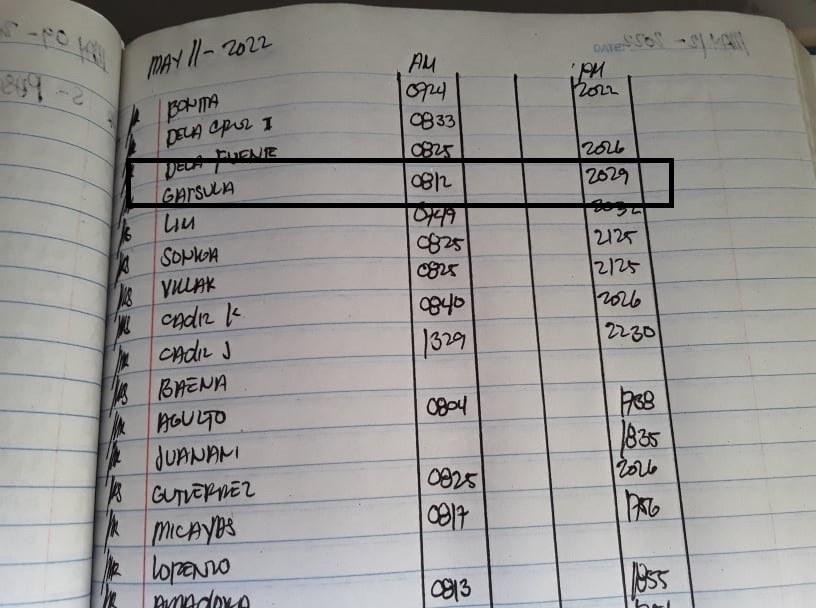 MAY 11-2022 AM PM
BONITA 0924 2022
DELA CRUZ I 0833
DELA FUENTE 0825 2026
GATSULA 0812 2029
LIM 0749 2032
SONGA 0825 2125
VILLAR 0825 2125
CADIZ K 0840 2026
CADIZ J 1329 2230
BAENA
AGULTO 0804 1738
JUANANI 1835
GUTIERREZ 0825 2026
MICAYAS 0817 1756
LORENZO
AMADORA 0813 1855
DATE: